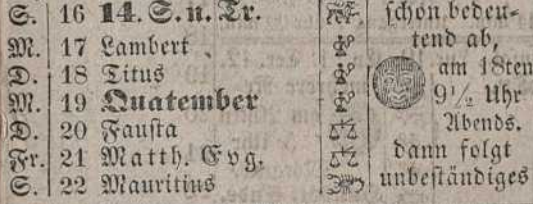 S. 16 14. S. n. Tr. schon bedeu-
M. 17 Lambert tend ab,
D. 18 Titus am 18ten
M. 19 Quatember 9½ Uhr
D. 20 Fausta Abends.
Fr. 21 Matth. Evg. dann folgt
S. 22 Mauritius unbeständiges